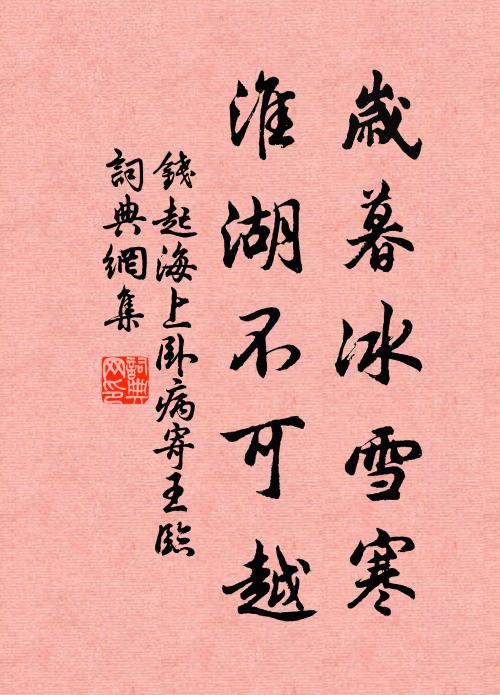 歲暮冰雪寒
淮湖不可越
錢起海上卧病寄王臨
詞典網集
詞典
网印